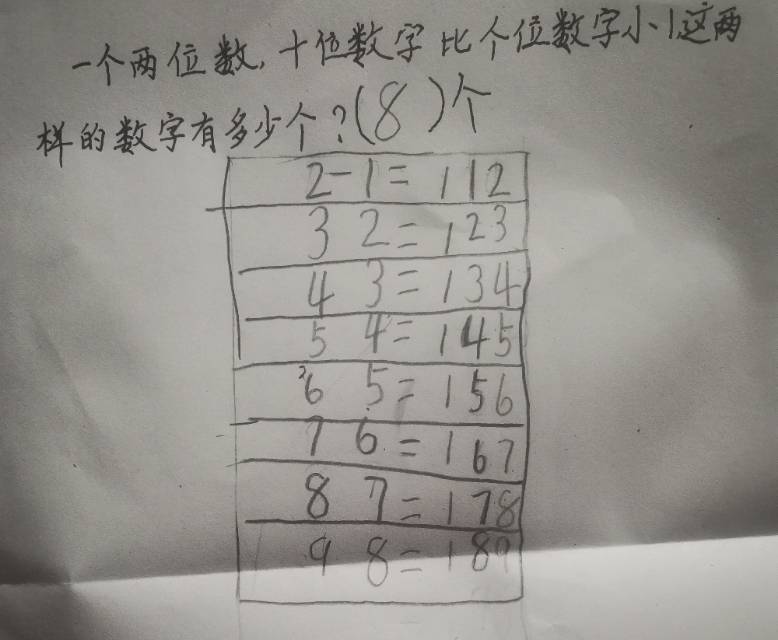 一个两位数,十位数字比个位数字小1,这两
样的数字有多少个?(8)个
2-1=1 12
3 2=1 23
4 3=1 34
5 4=1 45
6 5=1 56
7 6=1 67
8 7=1 78
9 8=1 89